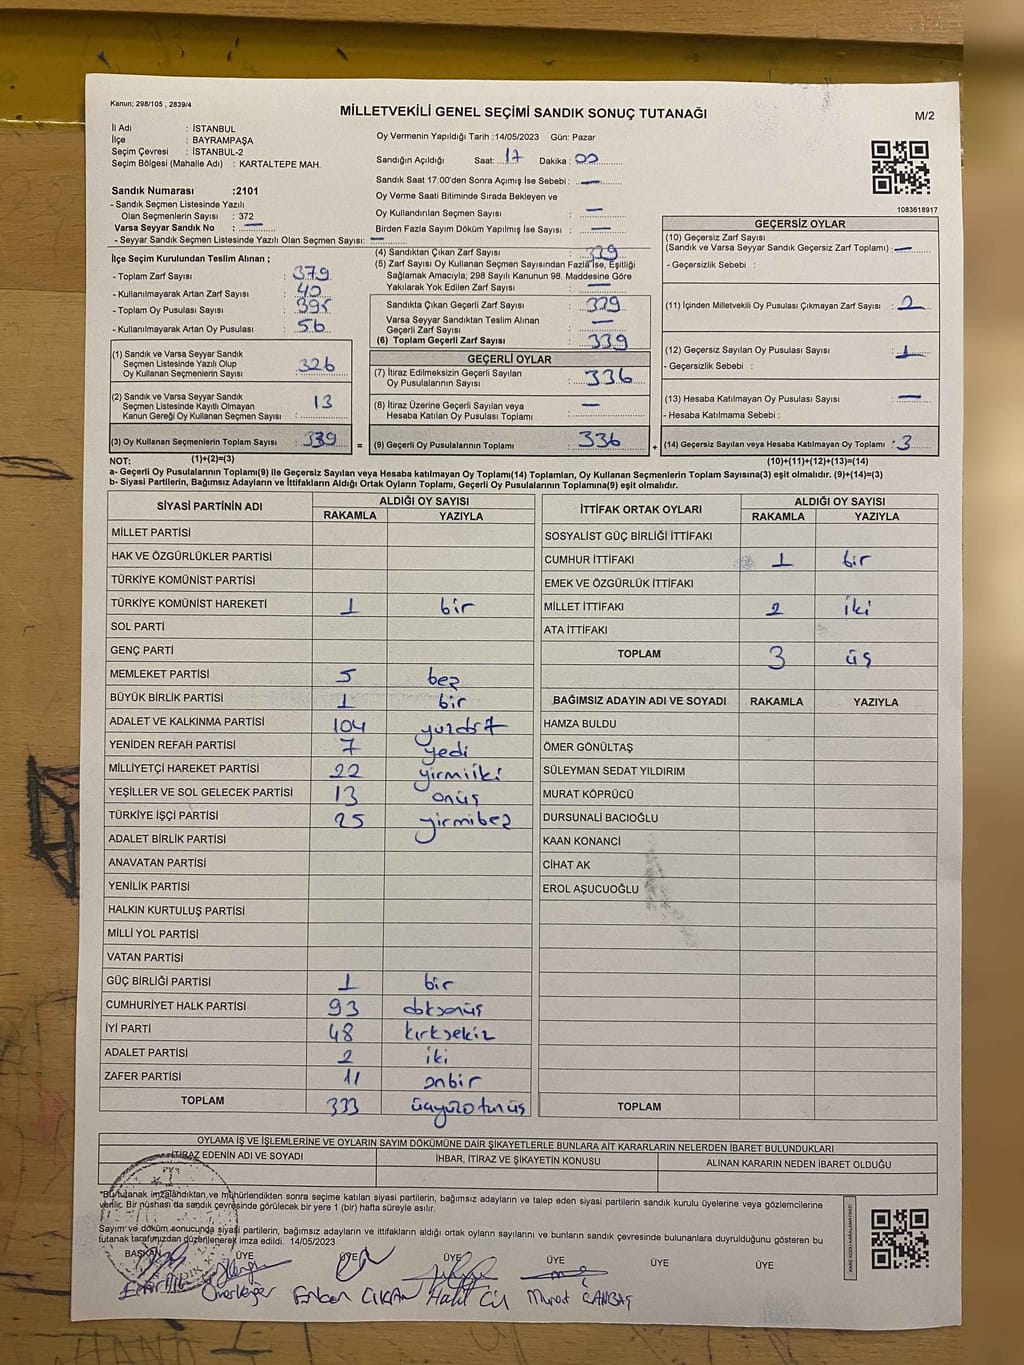 Kanun; 298/105 , 2839/4
MİLLETVEKİLİ GENEL SEÇİMİ SANDIK SONUÇ TUTANAĞI
M/2
İl Adı : İSTANBUL
İlçe : BAYRAMPAŞA
Seçim Çevresi : İSTANBUL-2
Seçim Bölgesi (Mahalle Adı) : KARTALTEPE MAH.
Oy Vermenin Yapıldığı Tarih :14/05/2023 Gün: Pazar
Sandığın Açıldığı Saat: 17 Dakika : 00
Sandık Saat 17:00'den Sonra Açımış İse Sebebi : —
Oy Verme Saati Bitiminde Sırada Bekleyen ve
Oy Kullandırılan Seçmen Sayısı : —
Birden Fazla Sayım Döküm Yapılmış İse Sayısı : —
1083618917
Sandık Numarası :2101
- Sandık Seçmen Listesinde Yazılı
Olan Seçmenlerin Sayısı : 372
Varsa Seyyar Sandık No : —
- Seyyar Sandık Seçmen Listesinde Yazılı Olan Seçmen Sayısı: —
İlçe Seçim Kurulundan Teslim Alınan ;
- Toplam Zarf Sayısı : 379
- Kullanılmayarak Artan Zarf Sayısı : 40
- Toplam Oy Pusulası Sayısı : 395
- Kullanılmayarak Artan Oy Pusulası : 56
(1) Sandık ve Varsa Seyyar Sandık
Seçmen Listesinde Yazılı Olup
Oy Kullanan Seçmenlerin Sayısı : 326
(2) Sandık ve Varsa Seyyar Sandık
Seçmen Listesinde Kayıtlı Olmayan
Kanun Gereği Oy Kullanan Seçmen Sayısı : 13
(3) Oy Kullanan Seçmenlerin Toplam Sayısı : 339
(4) Sandıktan Çıkan Zarf Sayısı : 339
(5) Zarf Sayısı Oy Kullanan Seçmen Sayısından Fazla İse, Eşitliği
Sağlamak Amacıyla; 298 Sayılı Kanunun 98. Maddesine Göre
Yakılarak Yok Edilen Zarf Sayısı : —
Sandıkta Çıkan Geçerli Zarf Sayısı : 339
Varsa Seyyar Sandıktan Teslim Alınan
Geçerli Zarf Sayısı : —
(6) Toplam Geçerli Zarf Sayısı : 339
GEÇERLİ OYLAR
(7) İtiraz Edilmeksizin Geçerli Sayılan
Oy Pusulalarının Sayısı : 336
(8) İtiraz Üzerine Geçerli Sayılan veya
Hesaba Katılan Oy Pusulası Toplamı : —
= (9) Geçerli Oy Pusulalarının Toplamı : 336 +
GEÇERSİZ OYLAR
(10) Geçersiz Zarf Sayısı
(Sandık ve Varsa Seyyar Sandık Geçersiz Zarf Toplamı) : —
- Geçersizlik Sebebi :
(11) İçinden Milletvekili Oy Pusulası Çıkmayan Zarf Sayısı : 2
(12) Geçersiz Sayılan Oy Pusulası Sayısı : 1
- Geçersizlik Sebebi :
(13) Hesaba Katılmayan Oy Pusulası Sayısı : —
- Hesaba Katılmama Sebebi :
(14) Geçersiz Sayılan veya Hesaba Katılmayan Oy Toplamı : 3
NOT: (1)+(2)=(3)
(10)+(11)+(12)+(13)=(14)
a- Geçerli Oy Pusulalarının Toplamı(9) ile Geçersiz Sayılan veya Hesaba katılmayan Oy Toplamı(14) Toplamları, Oy Kullanan Seçmenlerin Toplam Sayısına(3) eşit olmalıdır. (9)+(14)=(3)
b- Siyasi Partilerin, Bağımsız Adayların ve İttifakların Aldığı Ortak Oyların Toplamı, Geçerli Oy Pusulalarının Toplamına(9) eşit olmalıdır.
SİYASİ PARTİNİN ADI ALDIĞI OY SAYISI
RAKAMLA YAZIYLA
MİLLET PARTİSİ
HAK VE ÖZGÜRLÜKLER PARTİSİ
TÜRKİYE KOMÜNİST PARTİSİ
TÜRKİYE KOMÜNİST HAREKETİ 1 bir
SOL PARTİ
GENÇ PARTİ
MEMLEKET PARTİSİ 5 beş
BÜYÜK BİRLİK PARTİSİ 1 bir
ADALET VE KALKINMA PARTİSİ 104 yüzdört
YENİDEN REFAH PARTİSİ 7 yedi
MİLLİYETÇİ HAREKET PARTİSİ 22 yirmiiki
YEŞİLLER VE SOL GELECEK PARTİSİ 13 onüç
TÜRKİYE İŞÇİ PARTİSİ 25 yirmibeş
ADALET BİRLİK PARTİSİ
ANAVATAN PARTİSİ
YENİLİK PARTİSİ
HALKIN KURTULUŞ PARTİSİ
MİLLİ YOL PARTİSİ
VATAN PARTİSİ
GÜÇ BİRLİĞİ PARTİSİ 1 bir
CUMHURİYET HALK PARTİSİ 93 doksanüç
İYİ PARTİ 48 kırksekiz
ADALET PARTİSİ 2 iki
ZAFER PARTİSİ 11 onbir
TOPLAM 333 üçyüzotuzüç
İTTİFAK ORTAK OYLARI ALDIĞI OY SAYISI
RAKAMLA YAZIYLA
SOSYALİST GÜÇ BİRLİĞİ İTTİFAKI
CUMHUR İTTİFAKI 1 bir
EMEK VE ÖZGÜRLÜK İTTİFAKI
MİLLET İTTİFAKI 2 iki
ATA İTTİFAKI
TOPLAM 3 üç
BAĞIMSIZ ADAYIN ADI VE SOYADI RAKAMLA YAZIYLA
HAMZA BULDU
ÖMER GÖNÜLTAŞ
SÜLEYMAN SEDAT YILDIRIM
MURAT KÖPRÜCÜ
DURSUNALİ BACIOĞLU
KAAN KONANCİ
CİHAT AK
EROL AŞUCUOĞLU
TOPLAM
OYLAMA İŞ VE İŞLEMLERİNE VE OYLARIN SAYIM DÖKÜMÜNE DAİR ŞİKAYETLERLE BUNLARA AİT KARARLARIN NELERDEN İBARET BULUNDUKLARI
İTİRAZ EDENİN ADI VE SOYADI İHBAR, İTİRAZ VE ŞİKAYETİN KONUSU ALINAN KARARIN NEDEN İBARET OLDUĞU
*Bu tutanak imzalandıktan ve mühürlendikten sonra seçime katılan siyasi partilerin, bağımsız adayların ve talep eden siyasi partilerin sandık kurulu üyelerine veya gözlemcilerine
verilir. Bir nüshası da sandık çevresinde görülecek bir yere 1 (bir) hafta süreyle asılır.
Sayım ve döküm sonucunda siyasi partilerin, bağımsız adayların ve ittifakların aldığı ortak oyların sayılarını ve bunların sandık çevresinde bulunanlara duyrulduğunu gösteren bu
tutanak tarafımızdan düzenlenerek imza edildi. 14/05/2023
BAŞKAN ÜYE ÜYE ÜYE ÜYE ÜYE ÜYE
Erkan ÇIKAN Halil Murat CANBAŞ